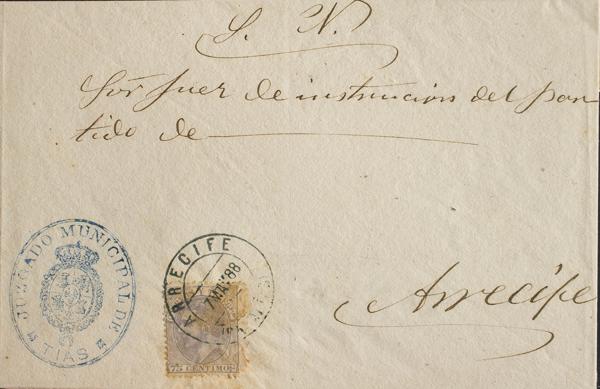 S. N.
Sor̃ Juez de instruccion del par-
tido de
Arrecife
JUZGADO MUNICIPAL DE
TIAS
ARRECIFE
MAY 88
75 CENTIMOS